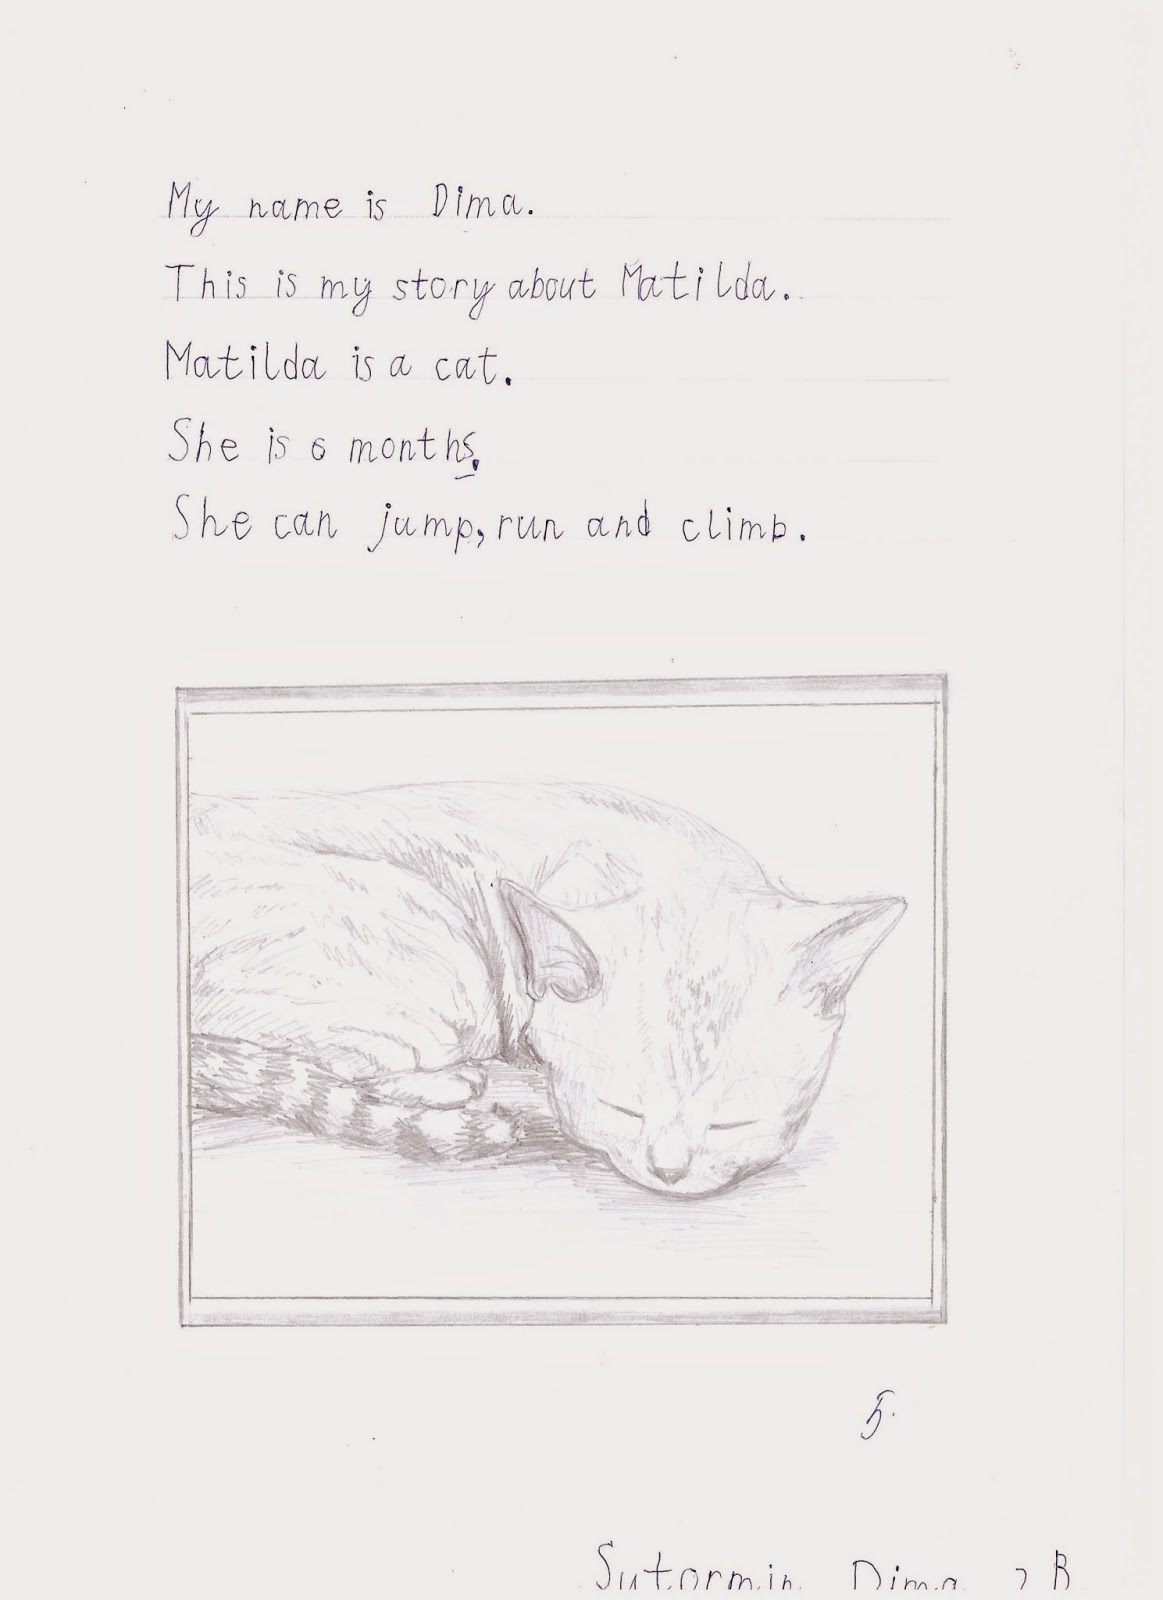 My name is Dima.
This is my story about Matilda.
Matilda is a cat.
She is 6 months.
She can jump, run and climb.
5.
Sutormin Dima 2 B